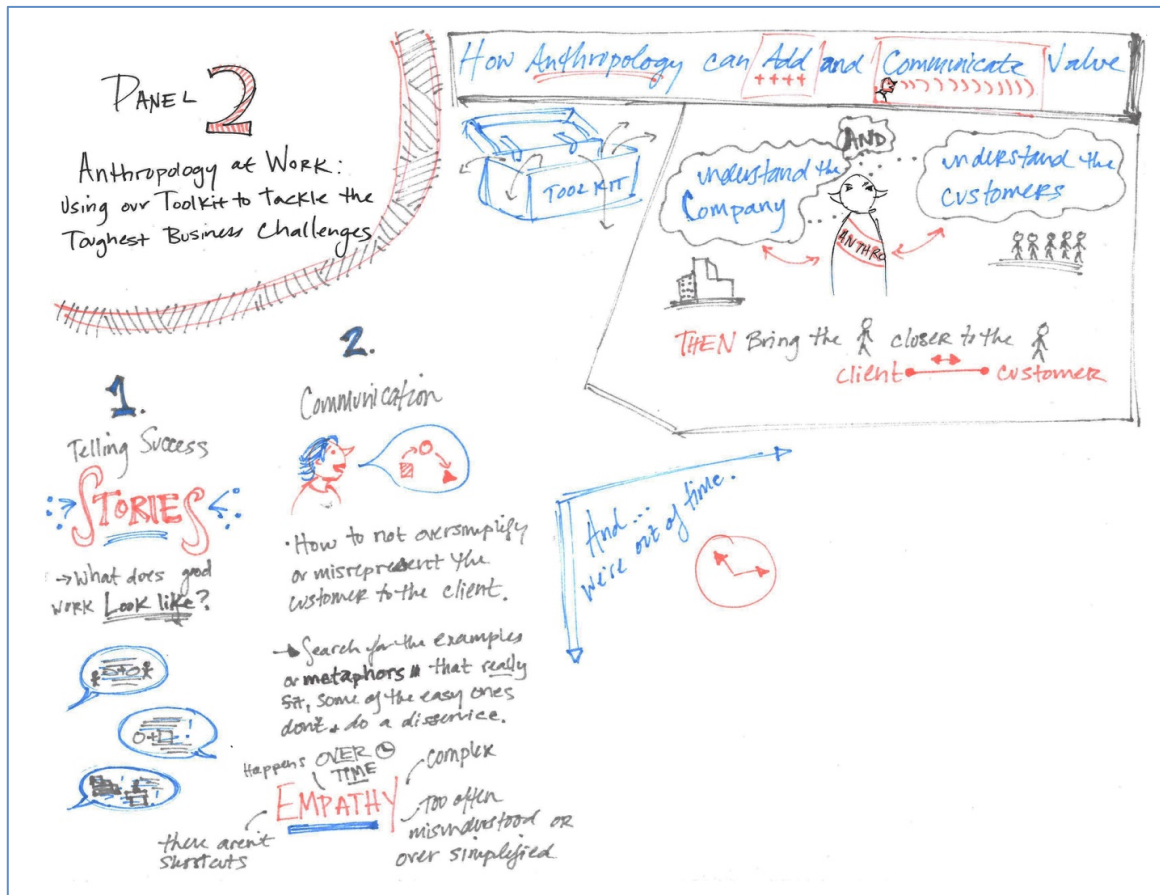 PANEL 2
Anthropology at Work:
Using our Toolkit to Tackle the
Toughest Business Challenges
How Anthropology can Add and Communicate Value
++++
TOOLKIT
understand the
Company
AND
understand the
customers
ANTHRO
THEN Bring the closer to the
client customer
1.
Telling Success
STORIES
→What does good
work Look like?
2.
Communication
•How to not oversimplify
or misrepresent the
customer to the client.
→Search for the examples
or metaphors that really
fit, some of the easy ones
don't + do a disservice.
Happens OVER
TIME
EMPATHY
complex
too often
misunderstood or
over simplified
there aren't
shortcuts
And...
we're out of time.